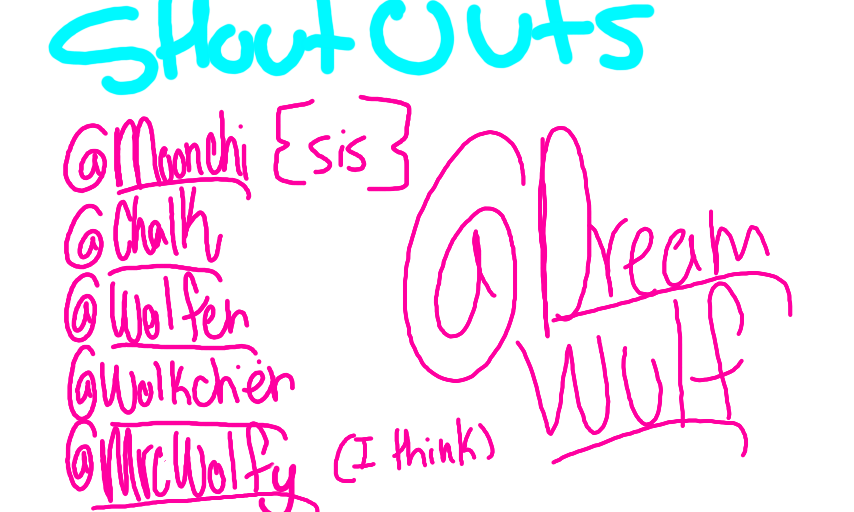 ShoutOuts
@Moonchi {sis}
@Chalk
@Wolfen
@Wolkchiër
@MrcWolfy (I think)
@Dream
Wulf